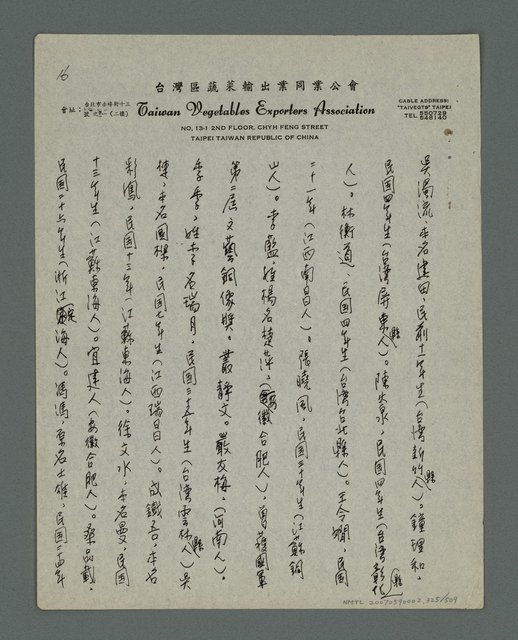 16
台灣區蔬菜輸出業同業公會
會址:台北市赤峰街十三號之一(二樓)
Taiwan Vegetables Exporters Association
NO, 13-1 2ND FLOOR, CHYH FENG STREET
TAIPEI TAIWAN REPUBLIC OF CHINA
CABLE ADDRESS:
"TAIVEGTS" TAIPEI
TEL 550728
548140
吳濁流,本名建田,民前十一年生(台灣新竹縣人)。鍾理和,
民國四年生(台灣屏東縣人)。陳火泉,民國四年生(台灣彰化縣
人)。林衡道,民國四年生(台灣台北縣人)。王令嫻,民國
二十一年(江西南昌人)。楊曉風,民國三十年生(江蘇銅
山人)。李藍,姓楊名楚萍,(安徽合肥人),曾獲國軍
第二屆文藝銅像獎。叢靜文。嚴友梅,(河南人)。
季季,姓李名瑞月,民國三十五年生(台灣雲林縣人)吳
標,本名國樑,民國七年生(江西瑞昌人)。成鐵吾,本名
彩鳳,民國十三年(江蘇東海人)。徐文水,本名曼,民國
十三年生(江蘇東海人)。宜建人(安徽合肥人)。桑品載,
民國二十七年生(浙江定海人)。馮馮,原名士雄,民國二四年
NMTL 20070590002 325/509